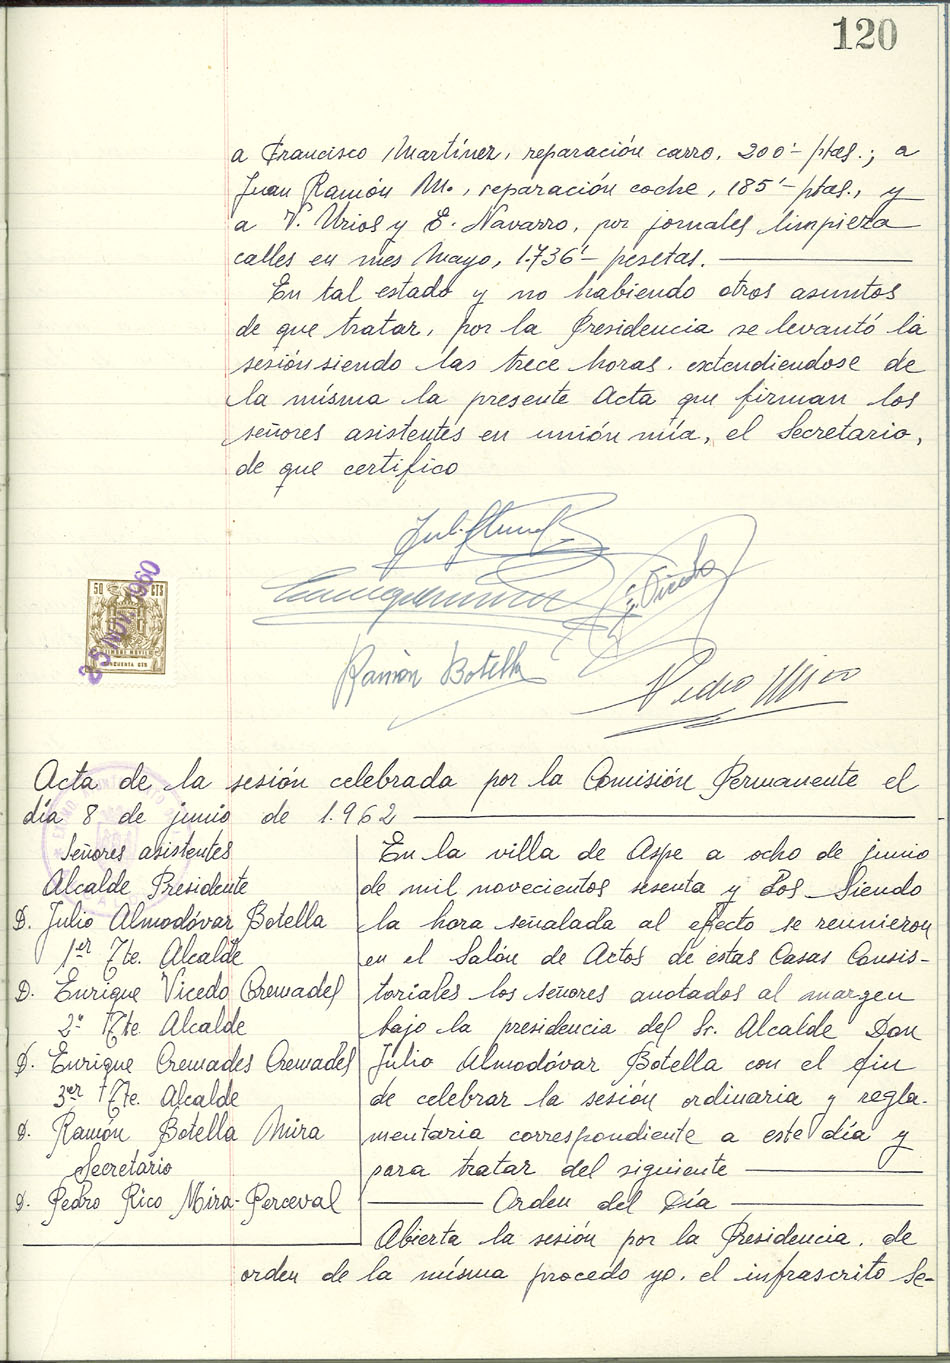 120
a Francisco Martínez, reparación carro, 200'- ptas.; a
Juan Ramón M., reparación coche, 185'- ptas., y
a V. Urios y E. Navarro, por jornales limpieza
calles en mes Mayo, 1.736'- pesetas.
En tal estado y no habiendo otros asuntos
de que tratar, por la Presidencia se levantó la
sesión siendo las trece horas. extendiendose de
la mísma la presente Acta que firman los
señores asistentes en unión mía, el Secretario,
de que certifico
50 CTS
25 NOV. 1960
TIMBRE MOVIL
CINCUENTA CTS
E. Vicedo
Ramón Botella
Pedro Rico
Acta de la sesión celebrada por la Comisión Permanente el
día 8 de junio de 1.962
Señores asistentes
Alcalde Presidente
D. Julio Almodóvar Botella
1er Tte. Alcalde
D. Enrique Vicedo Cremades
2º Tte Alcalde
D. Enrique Cremades Cremades
3er Tte. Alcalde
D. Ramón Botella Mira
Secretario
D. Pedro Rico Mira-Perceval
En la villa de Aspe a ocho de junio
de mil novecientos sesenta y dos. Siendo
la hora señalada al efecto se reunieron
en el Salón de Actos de estas Casas Consis-
toriales los señores anotados al margen
bajo la presidencia del Sr. Alcalde Don
Julio Almodóvar Botella con el fin
de celebrar la sesión ordinaria y regla-
mentaria correspondiente a este día y
para tratar del siguiente
Orden del Día
Abierta la sesión por la Presidencia, de
orden de la mísma procedo yo, el infrascrito Se-